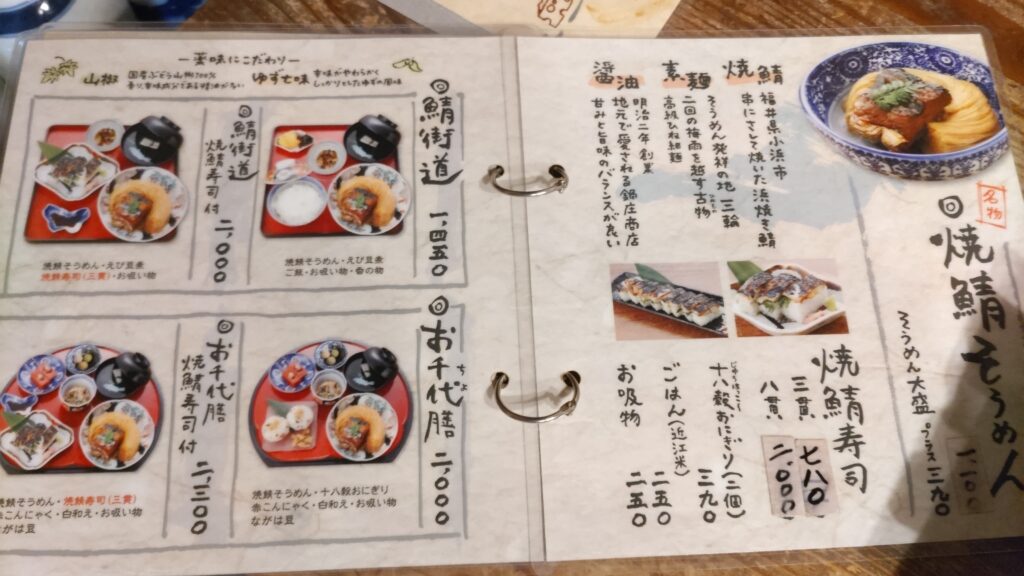 名物
焼鯖そうめん
一、一〇〇
そうめん大盛 プラス三九〇
焼鯖
福井県小浜市
串にさして焼いた浜焼き鯖
素麺
そうめん発祥の地 三輪
二回の梅雨を越す古物
高級ひね細麺
醤油
明治二年創業
地元で愛される鍋庄商店
甘みと旨味のバランスが良い
焼鯖寿司
三貫 七八〇
八貫 二、〇〇〇
十八穀おにぎり(二個) 三九〇
ごはん(近江米) 二五〇
お吸物 二五〇
ー薬味にこだわりー
山椒
国産ぶどう山椒100%
ゆず七味
辛味がやわらかく
しっかりとしたゆずの風味
鯖街道 一、四五〇
焼鯖そうめん・えび豆煮
ご飯・お吸い物・香の物
鯖街道
焼鯖寿司付 二、〇〇〇
焼鯖そうめん・えび豆煮
焼鯖寿司(三貫)・お吸い物
お千代膳 二、〇〇〇
ちよ
焼鯖そうめん・十八穀おにぎり
赤こんにゃく・白和え・お吸い物
ながは豆
お千代膳
焼鯖寿司付 二、三〇〇
焼鯖そうめん・焼鯖寿司(三貫)
赤こんにゃく・白和え・お吸い物
ながは豆